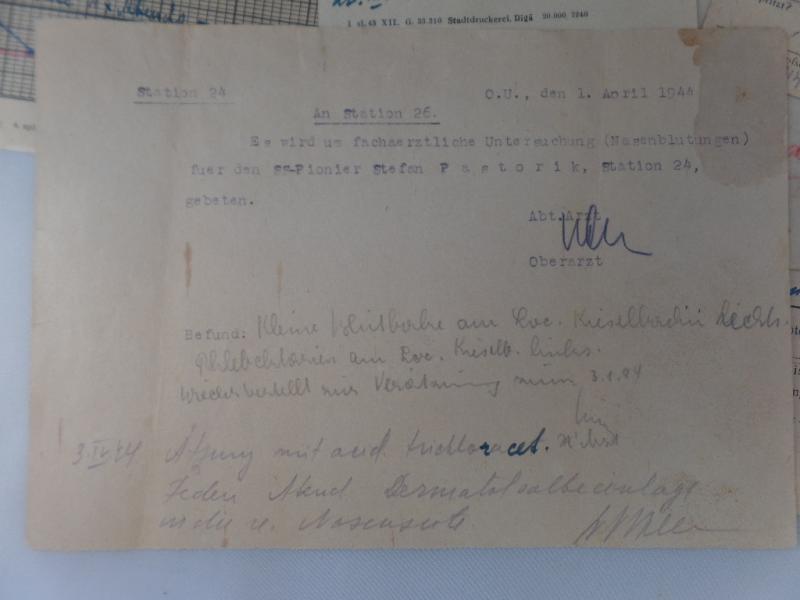 1 sl. 43 XII. G. 33.310 Stadtdruckerei. Rigā 20.000 2240
Station 24 O.U., den 1. April 1944
An Station 26.
Es wird um fachaerztliche Untersuchung (Nasenblutungen)
fuer den SS-Pionier Stefan P a s t o r i k, Station 24,
gebeten.
Abt.Arzt
Oberarzt
Befund: Kleine am Loc. Kieselbachii rechts.
Phlebektasien am Loc. Kieselb. links.
Wiederbestellt zur Verätzung zum 3.4.44
3.IV.44 Ätzung mit acid. trichloracet.
Jeden Abend Dermatolsalbeeinlage
in die r. Nasenseite